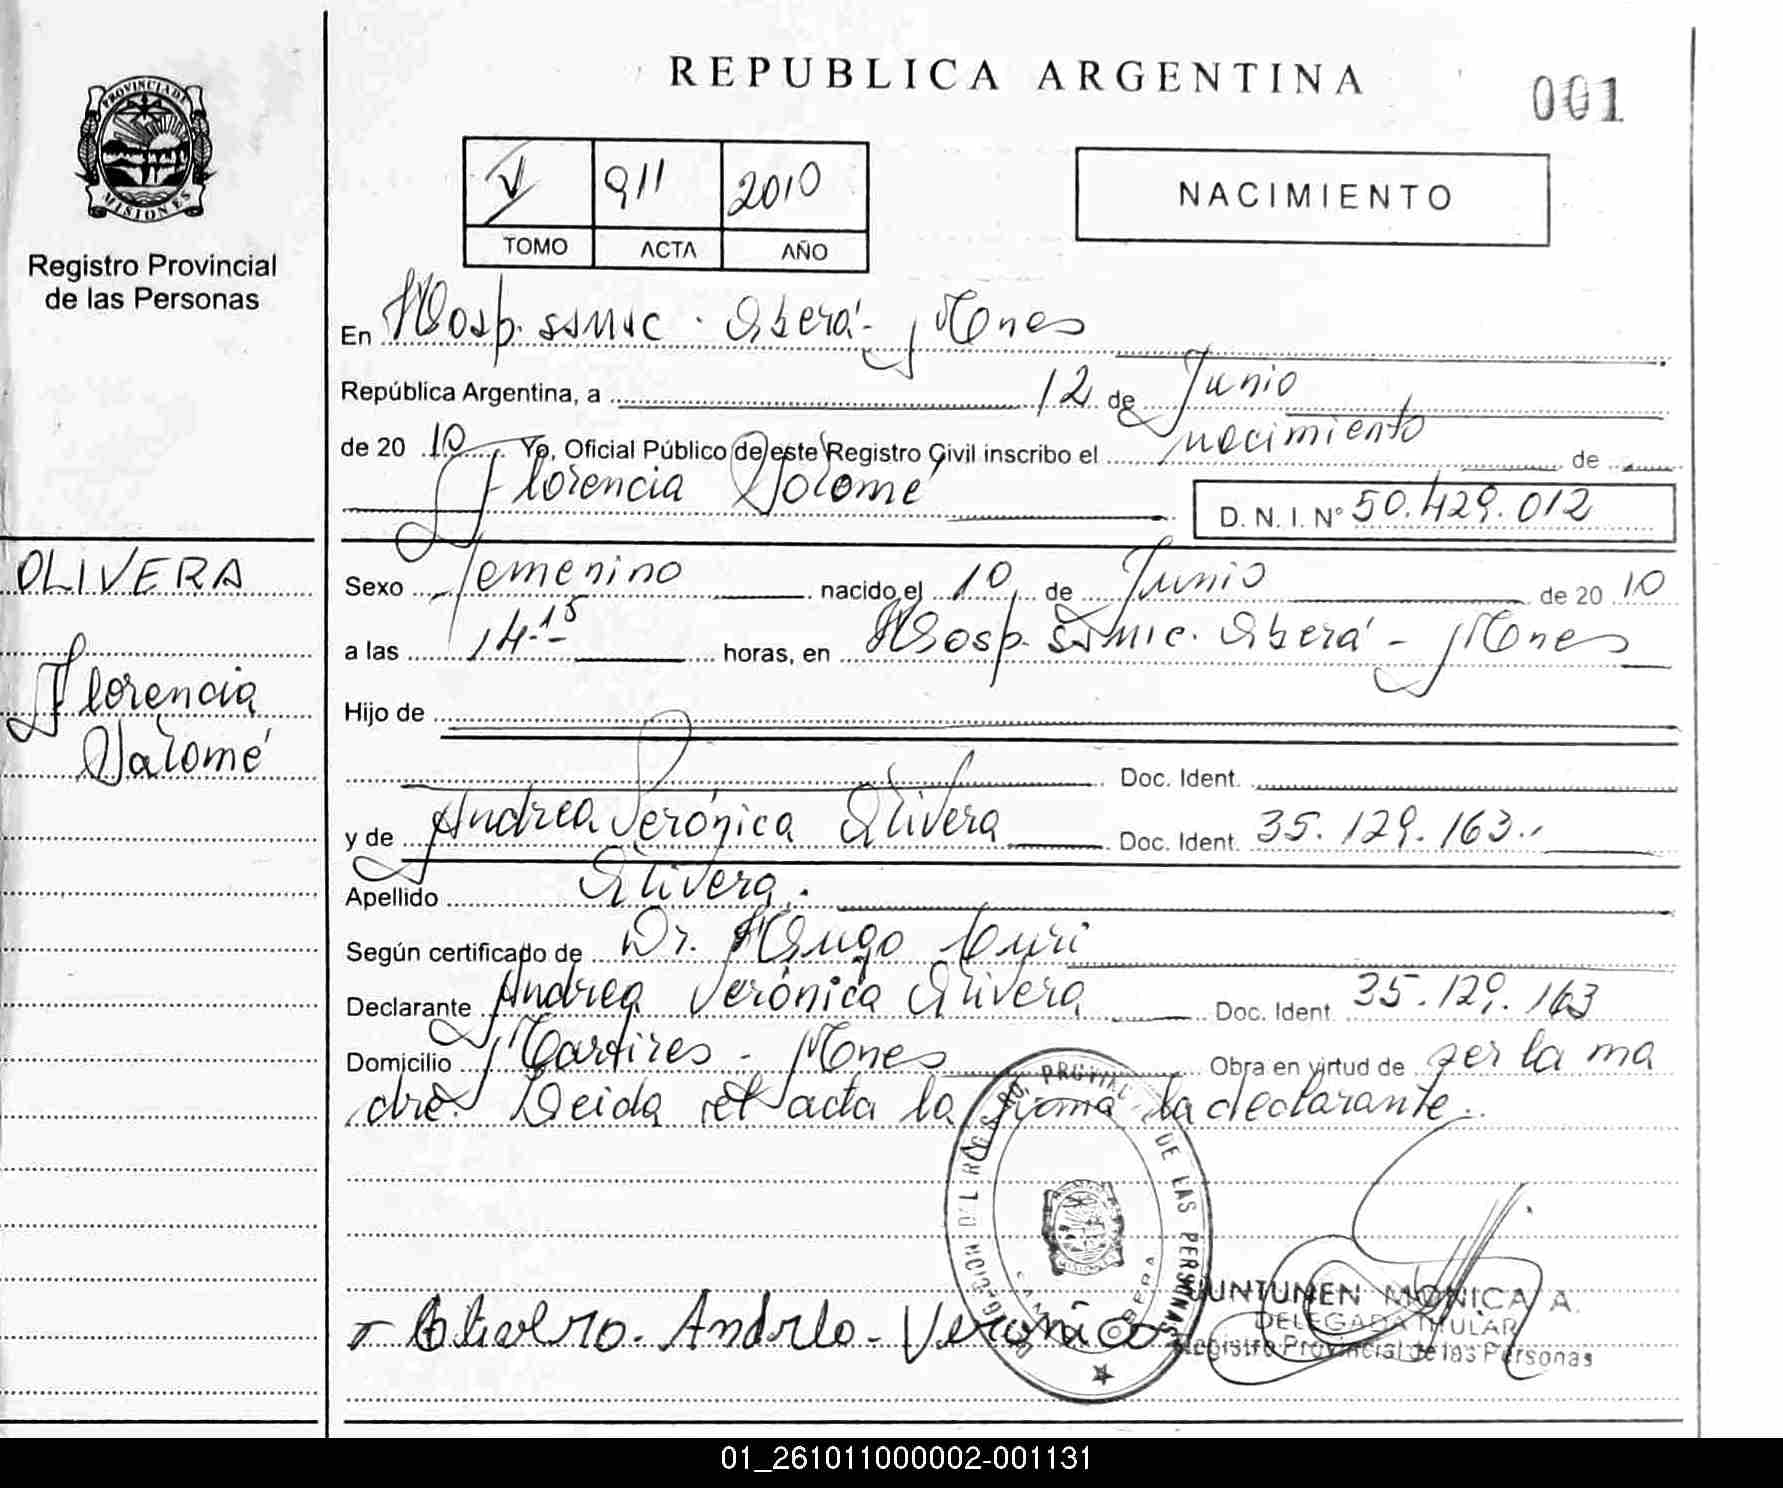 REPUBLICA ARGENTINA
001
PROVINCIA DE
MISIONES
Registro Provincial
de las Personas
V 911 2010
TOMO ACTA AÑO
NACIMIENTO
En Hosp. SAMIC. Oberá - Mnes
República Argentina, a 12 de Junio
de 20 10 Yo, Oficial Público de este Registro Civil inscribo el nacimiento de
Florencia Salomé D. N. I. Nº 50.429.012
OLIVERA
Florencia
Salomé
Sexo femenino nacido el 10 de Junio de 20 10
a las 14-15 horas, en Hosp. SAMIC. Oberá - Mnes
Hijo de
Doc. Ident.
y de Andrea Verónica Olivera Doc. Ident. 35.129.163.-
Apellido Olivera.
Según certificado de Dr. Hugo Curi
Declarante Andrea Verónica Olivera Doc. Ident. 35.129.163
Domicilio Mártires - Mnes Obra en virtud de ser la ma
dre. Leida el acta la firma la declarante.
DE LAS PERSONAS
MISIONES
OBERA
Olivera. Andrea. Veronica
JUNTUNEN MONICA A.
DELEGADA TITULAR
Registro Provincial de las Personas
01_261011000002-001131